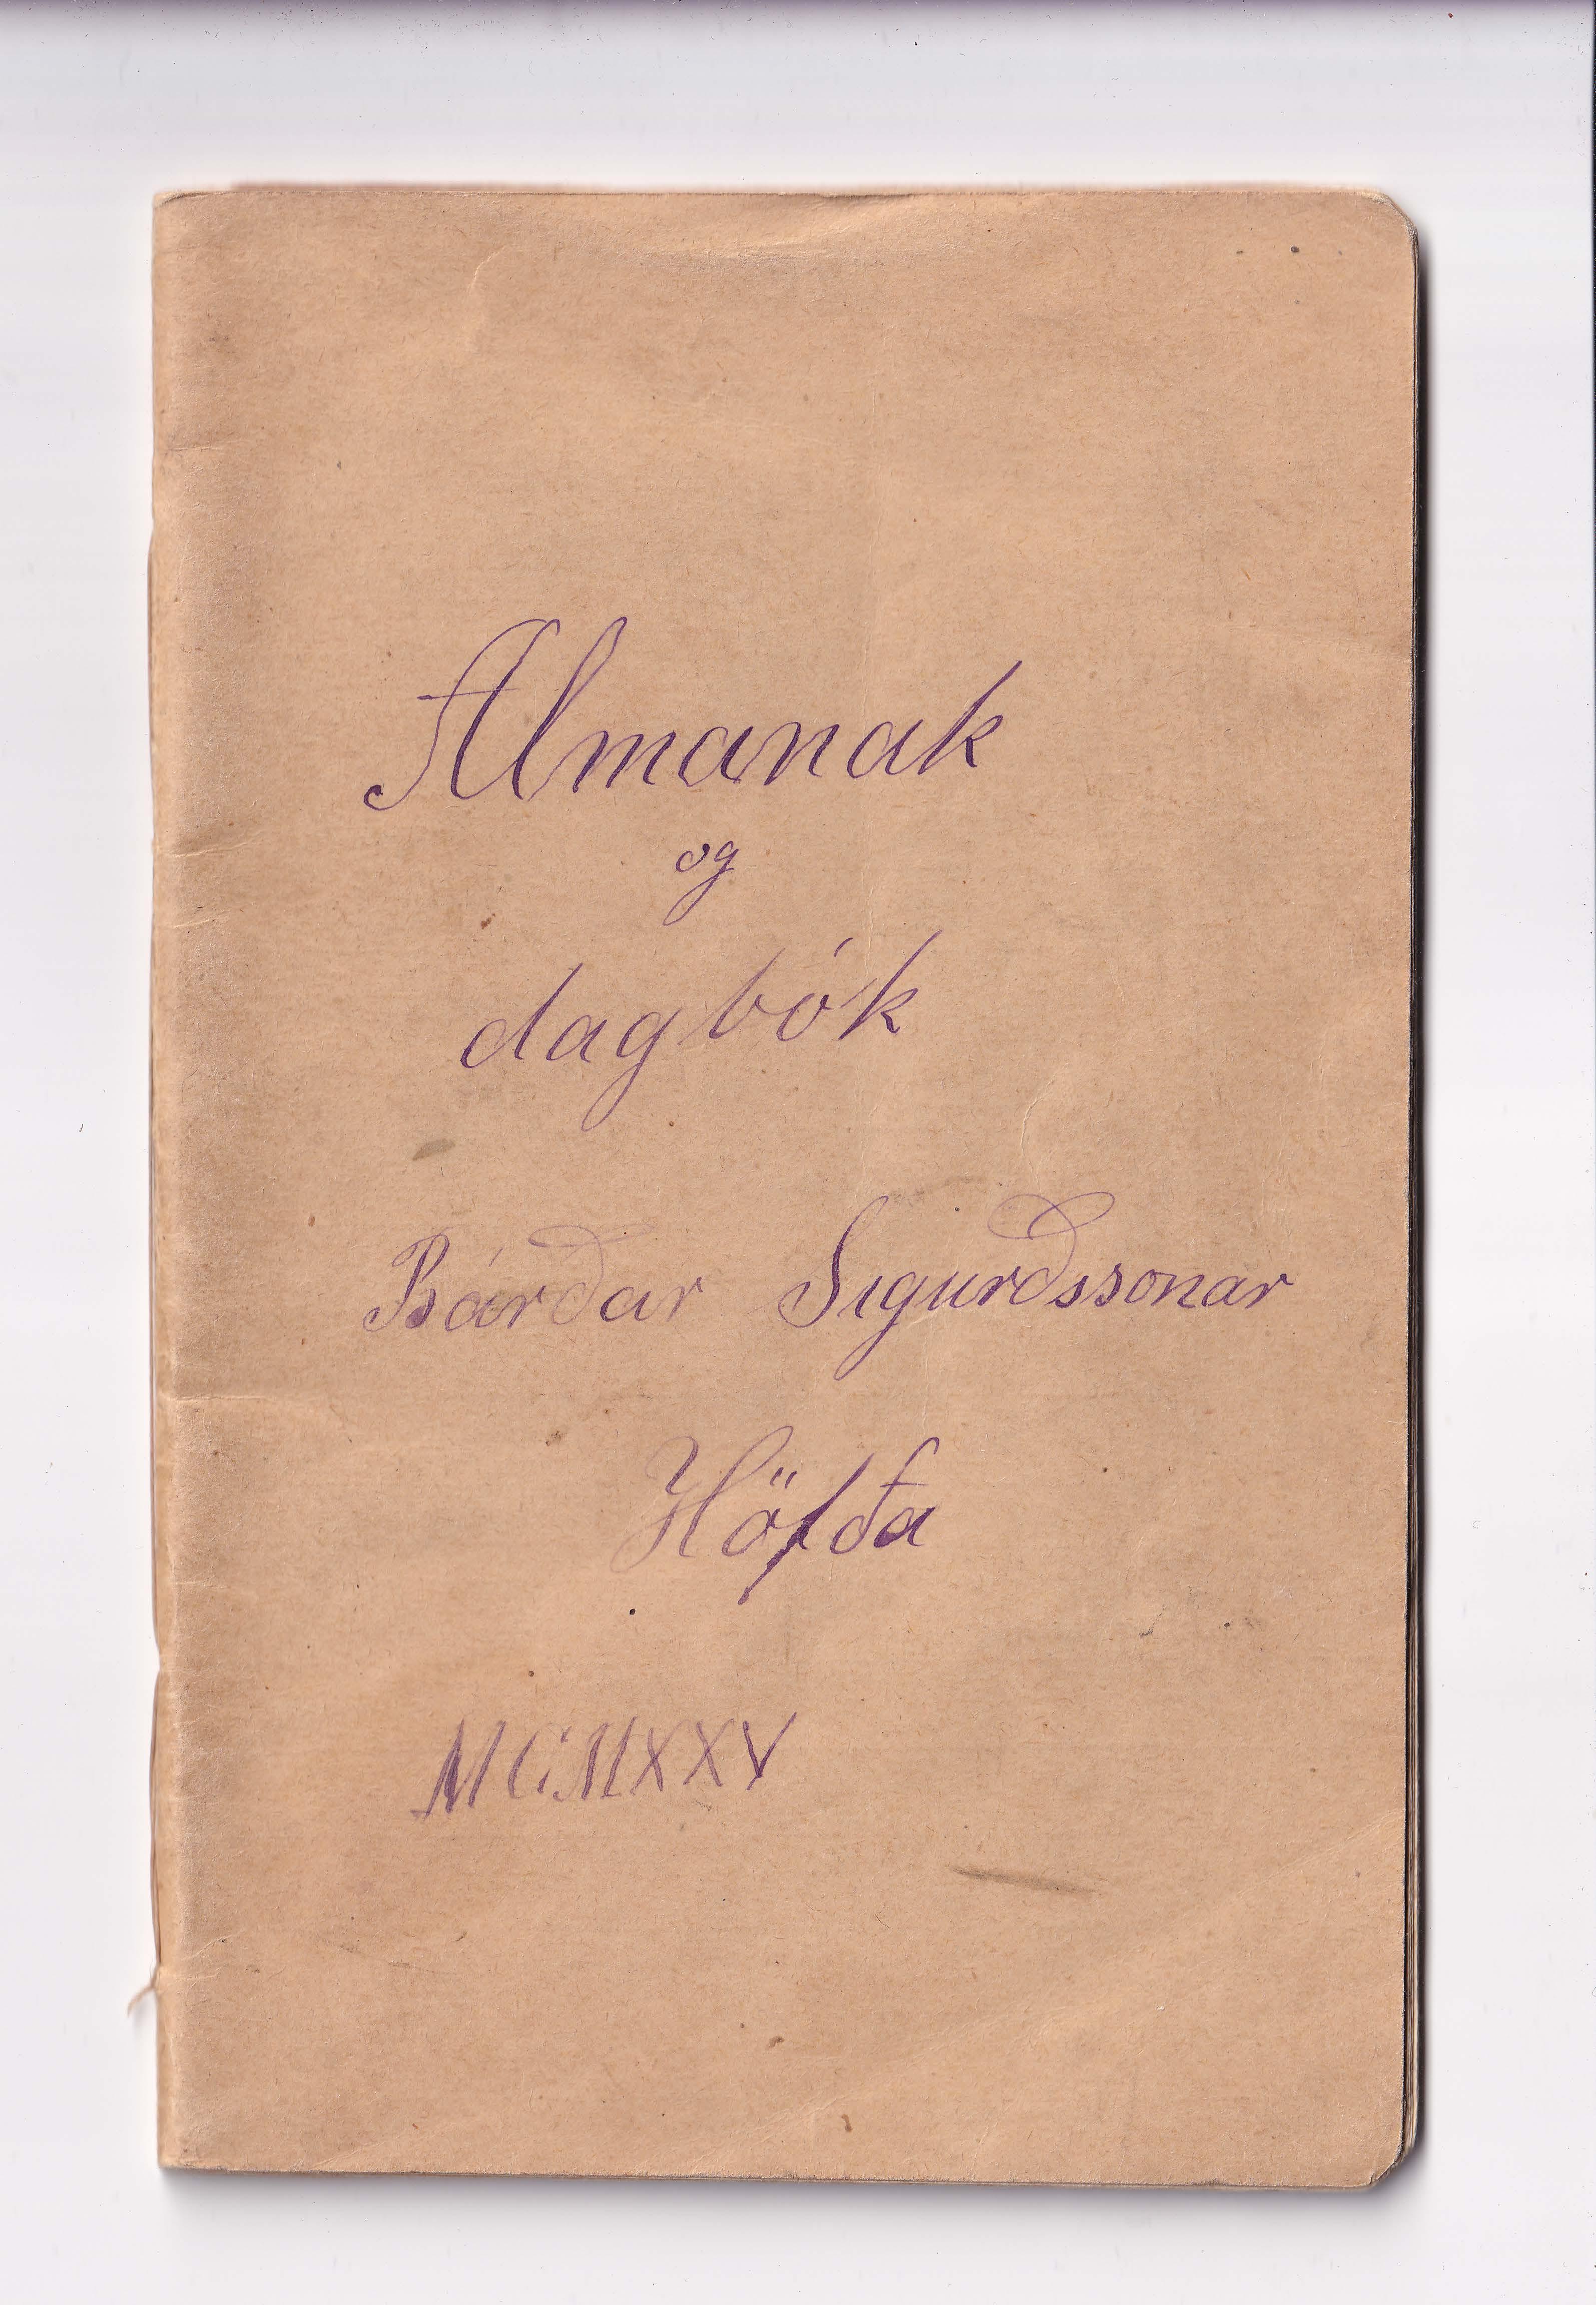 Almanak
og
dagbók
Bárðar Sigurðssonar
Höfða
MCMXXV